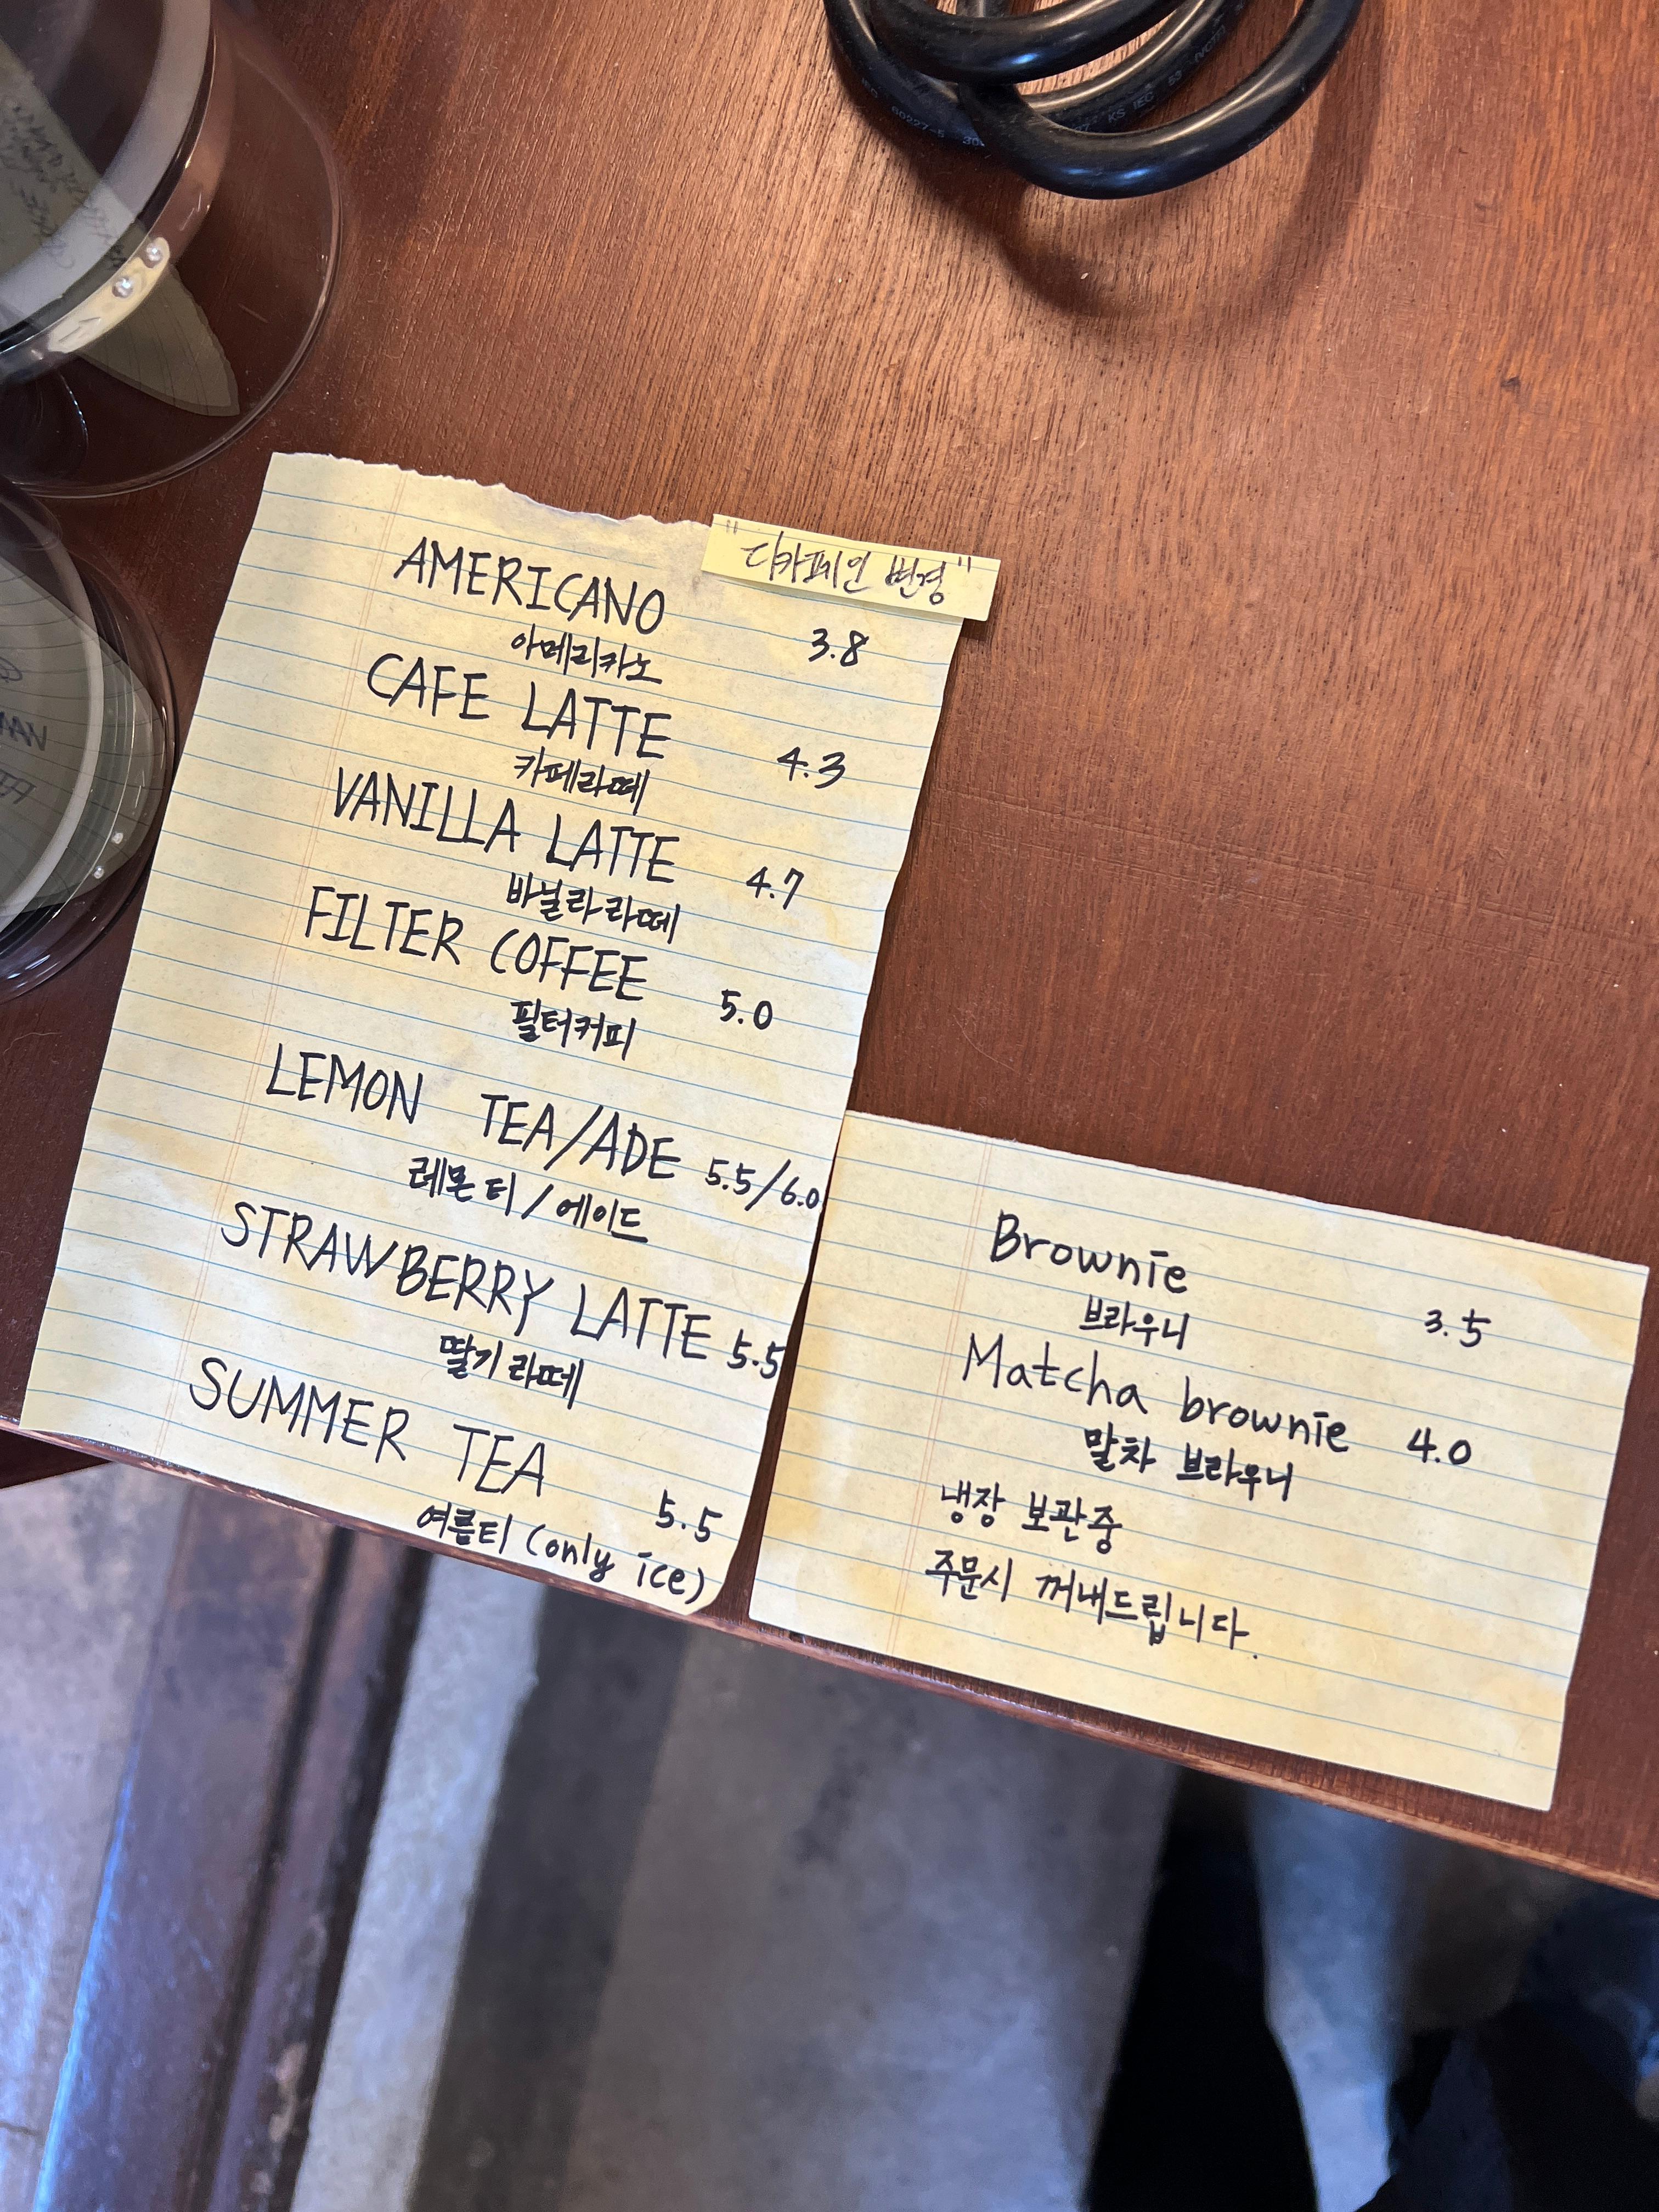 "디카페인 변경"
AMERICANO
아메리카노 3.8
CAFE LATTE
카페라떼 4.3
VANILLA LATTE
바닐라라떼 4.7
FILTER COFFEE
필터커피 5.0
LEMON TEA/ADE 5.5/6.0
레몬티/에이드
STRAWBERRY LATTE 5.5
딸기라떼
SUMMER TEA
5.5
여름티 (only ice)
Brownie
브라우니 3.5
Matcha brownie 4.0
말차 브라우니
냉장 보관중
주문시 꺼내드립니다.